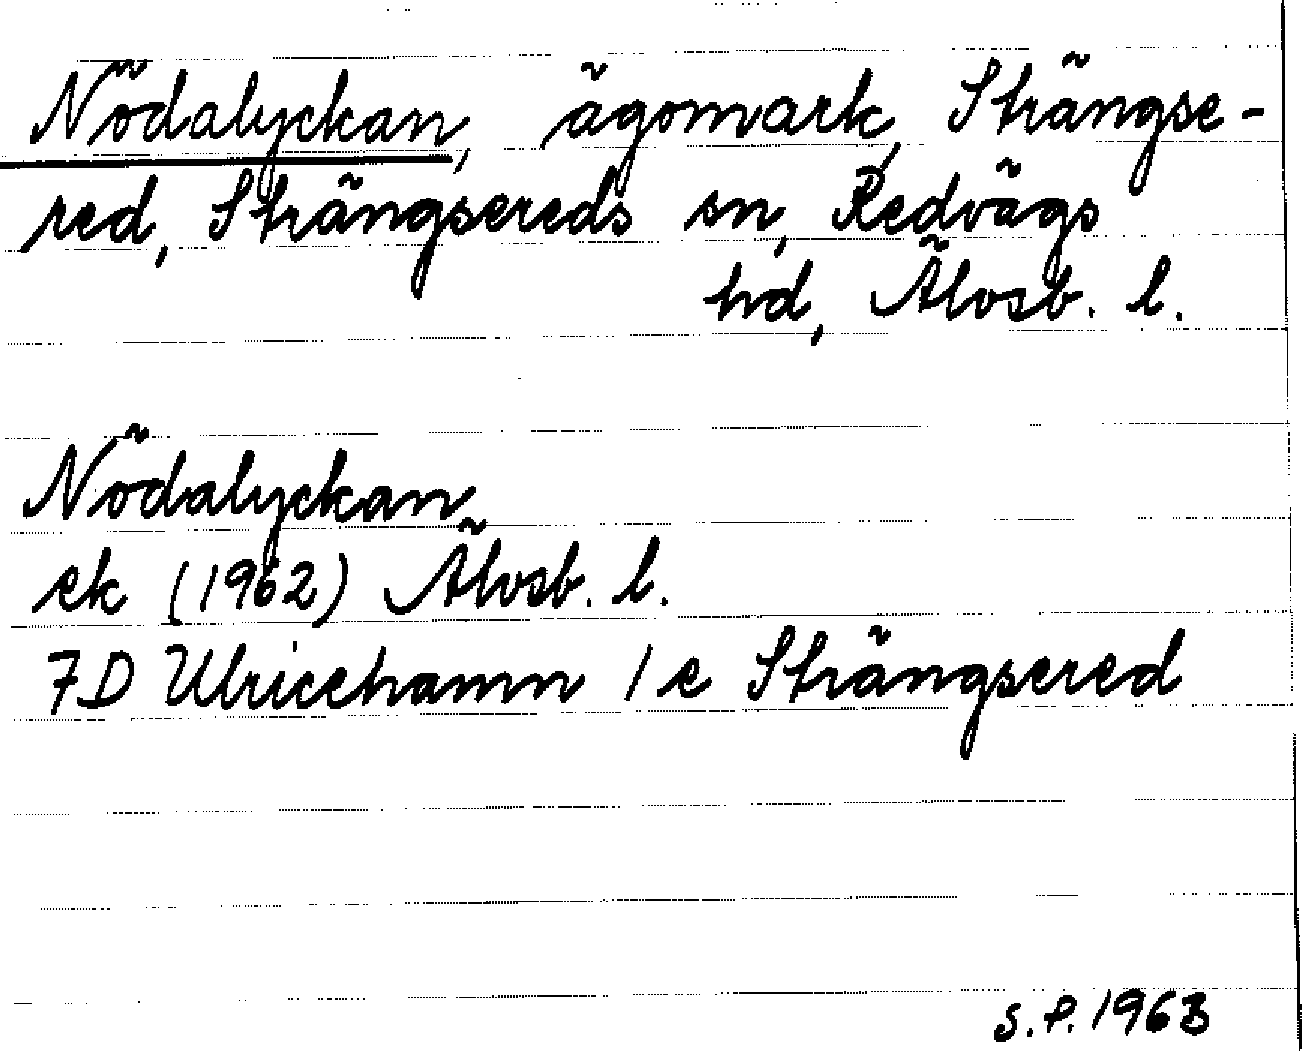 Nödalyckan, ägomark, Strängse-
red, Strängsereds sn, Redvägs
hd, Älvsb. l.
Nödalyckan
ek (1962) Älvsb. l.
7D Ulricehamn 1e Strängsered
S.P. 1963